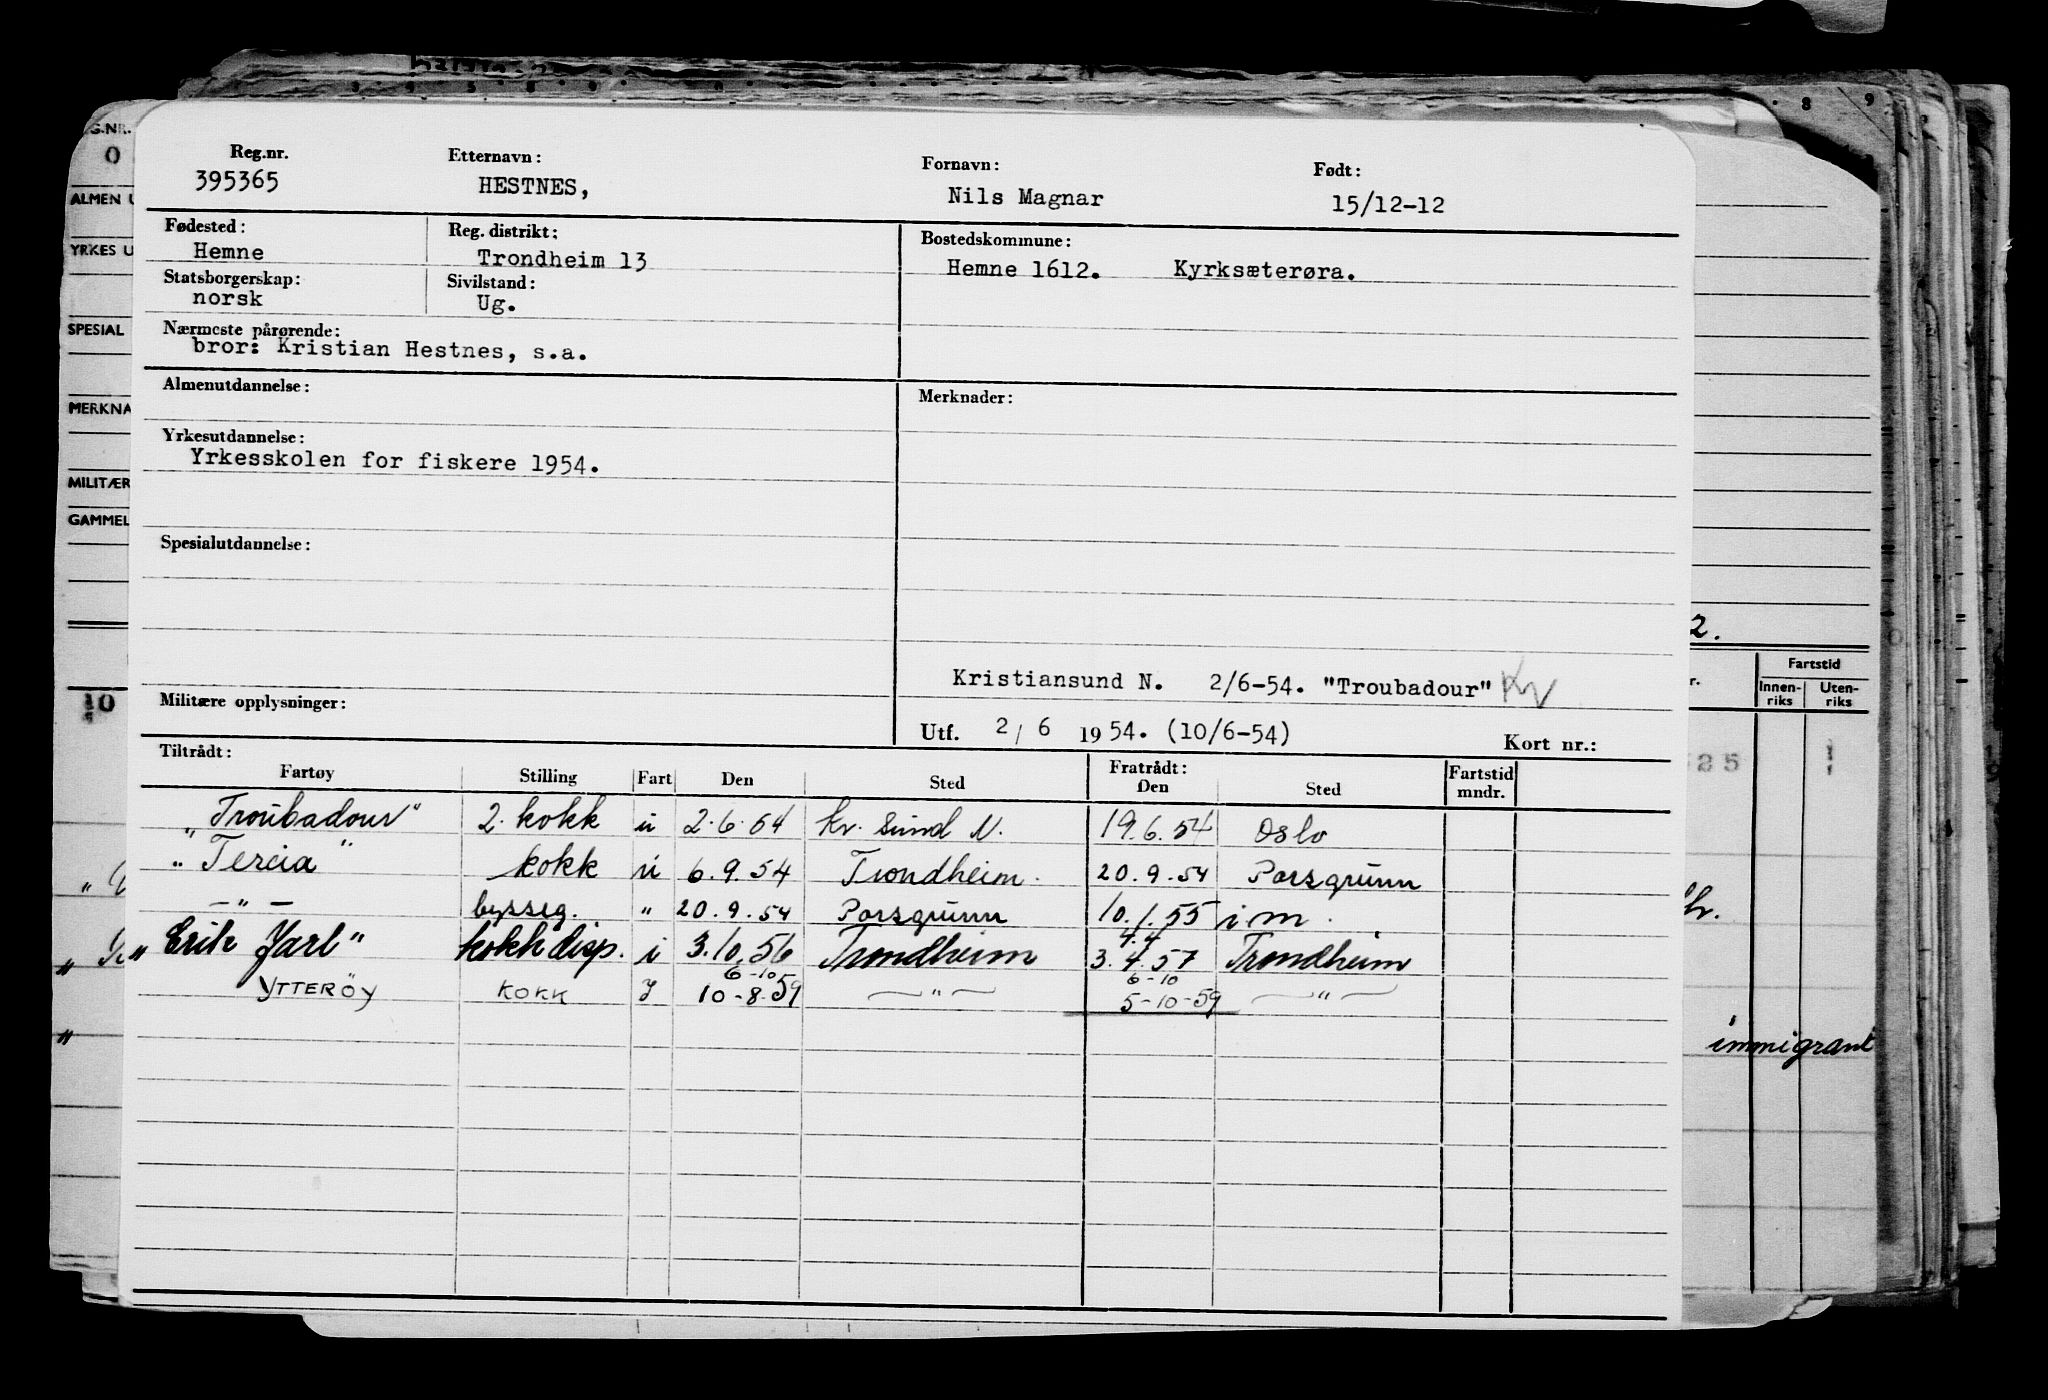 Reg.nr. Etternavn: Fornavn: Født:
395365 HESTNES, Nils Magnar 15/12-12
Fødested: Reg. distrikt: Bostedskommune:
Hemne Trondheim 13 Hemne 1612. Kyrksæterøra.
Statsborgerskap: Sivilstand:
norsk Ug.
Nærmeste pårørende:
bror: Kristian Hestnes, s.a.
Almenutdannelse: Merknader:
Yrkesutdannelse:
Yrkesskolen for fiskere 1954.
Spesialutdannelse:
Kristiansund N. 2/6-54. "Troubadour" Kr
Militære opplysninger:
Utf. 2/6 1954. (10/6-54) Kort nr.:
Tiltrådt: Fratrådt:
Fartøy Stilling Fart Den Sted Den Sted Fartstid mndr.
"Troubadour" 2. kokk u 2.6.54 Kr. sund N. 19.6.54 Oslo
"Tereia" kokk u 6.9.54 Trondheim. 20.9.54 Porsgrunn
—"— bysseg. " 20.9.54 Porsgrunn 10.1.55 i m.
4.4
"Erik Jarl" kokk disp. i 3.10.56 Trondheim 3.4.57 Trondheim
6-10 6-10
YTTERÖY KOKK J 10-8-59 —"— 5-10-59 —"—
G.NR.
0
ALMEN U
YRKES U
SPESIAL
MERKNA
MILITÆR
GAMMEL
10
8 9
2.
Fartstid
r. Innen-riks Uten-riks
25
immigrant